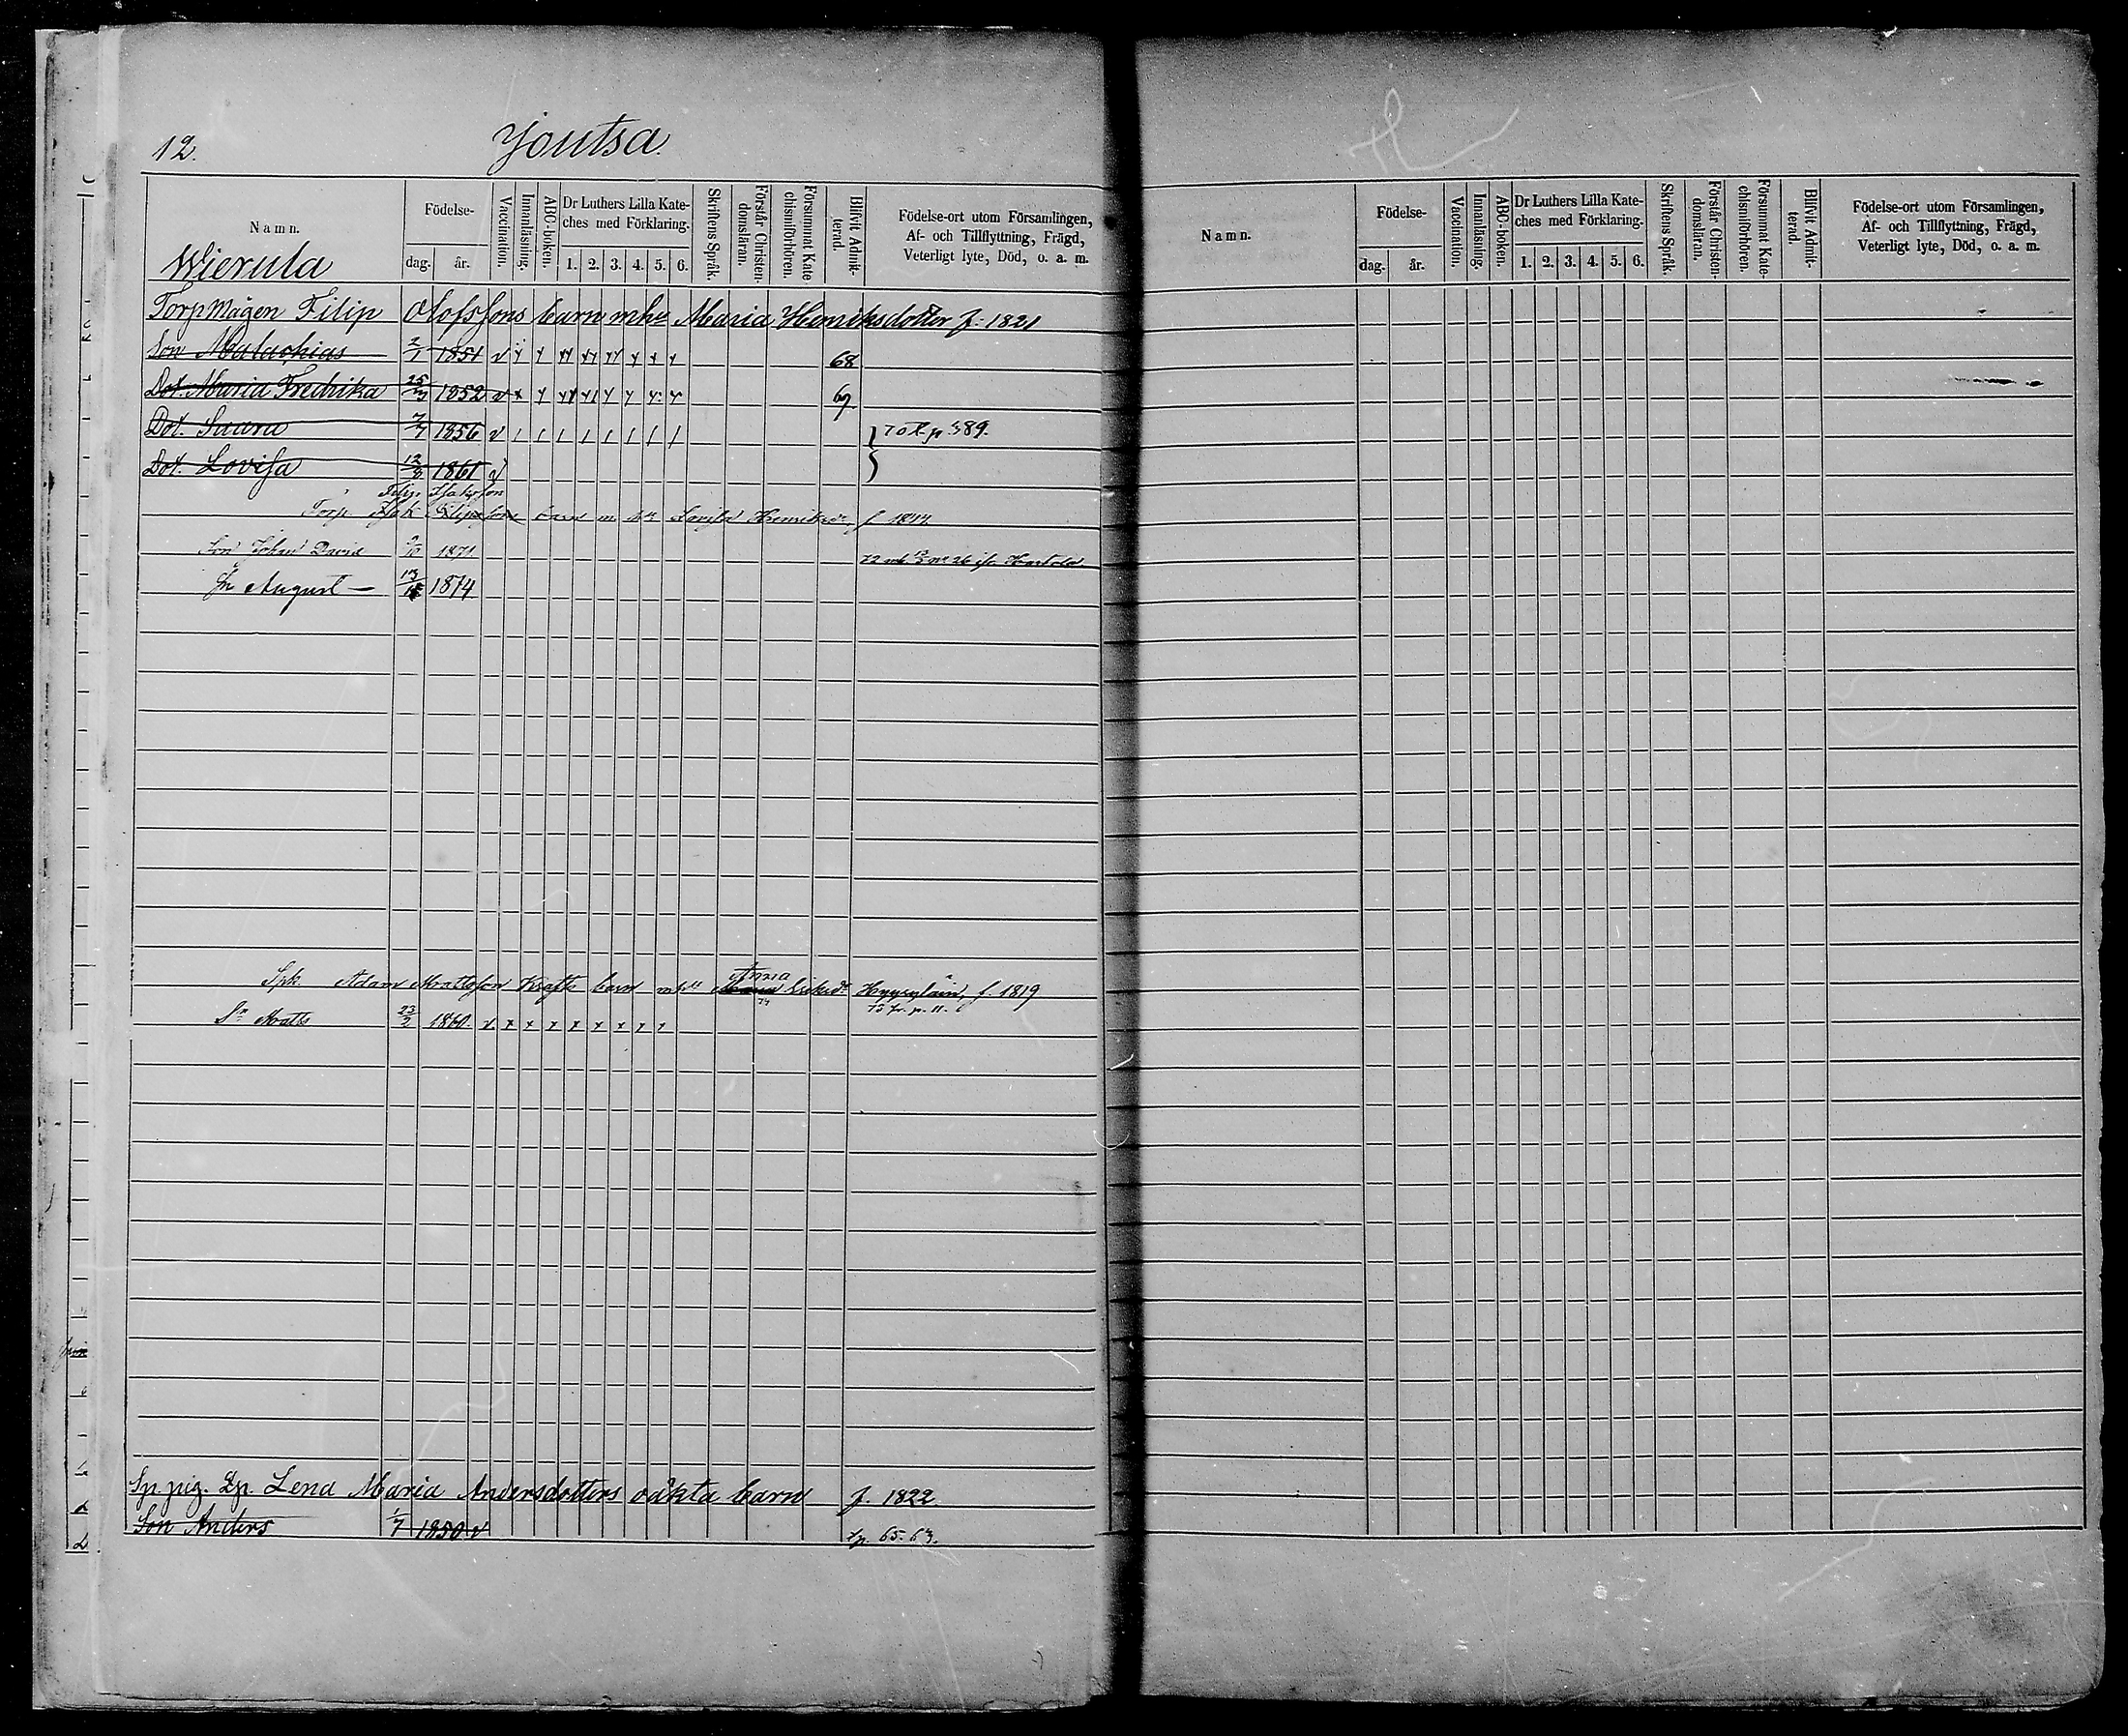 12. Joutsa
Namn. Födelse- dag. år. Vaccination. Innanläsning. ABC-boken. Dr Luthers Lilla Kateches med Förklaring. 1. 2. 3. 4. 5. 6. Skriftens Språk. Förstår Christendomsläran. Försummat Katechismiförhören. Blifvit Admitterad. Födelse-ort utom Församlingen, Af- och Tillflyttning, Frägd, Veterligt lyte, Död, o. a. m.
Wierula
Torpmågen Filip Olofssons barn mhu Maria Henriksdotter f. 1821
Son Malachias 2/1 1851 v 68
Dot. Maria Fredrika 25/7 1852 v 69
Dot. Saara 7/7 1856 v } 70 k. p. 389.
Dot. Lovisa 12/8 1861 v }
Filip Isaksson
Torp. Isak Filipsson barn m hu Lovisa Henriksdr f 1844
Son Johan David 9/10 1871 72 mb 13/3 no 26 ifr. Hartola
Sn August — 13/11 1874
Spk. Adam Mattsson Krafts barn mhu Anna Maria Eriksdr Hyyryläin, f. 1819
74 75 fr. p. 11.
Sn Matts 23/2 1860. v x x x x x x x x
Sp. pig. Lena Maria Andersdotters oäkta barn f. 1822
Son Anders 1/7 1850 v p. 65. 63.
Namn. Födelse- dag. år. Vaccination. Innanläsning. ABC-boken. Dr Luthers Lilla Kateches med Förklaring. 1. 2. 3. 4. 5. 6. Skriftens Språk. Förstår Christendomsläran. Försummat Katechismiförhören. Blifvit Admitterad. Födelse-ort utom Församlingen, Af- och Tillflyttning, Frägd, Veterligt lyte, Död, o. a. m.